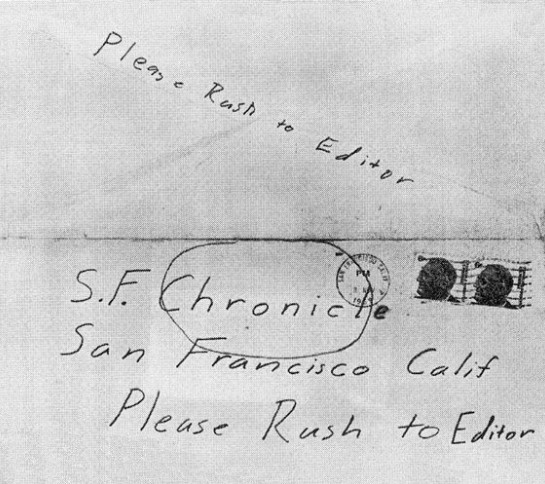 Please Rush to Editor
S.F. Chronicle
San Francisco Calif
Please Rush to Editor
SAN FRANCISCO
PM